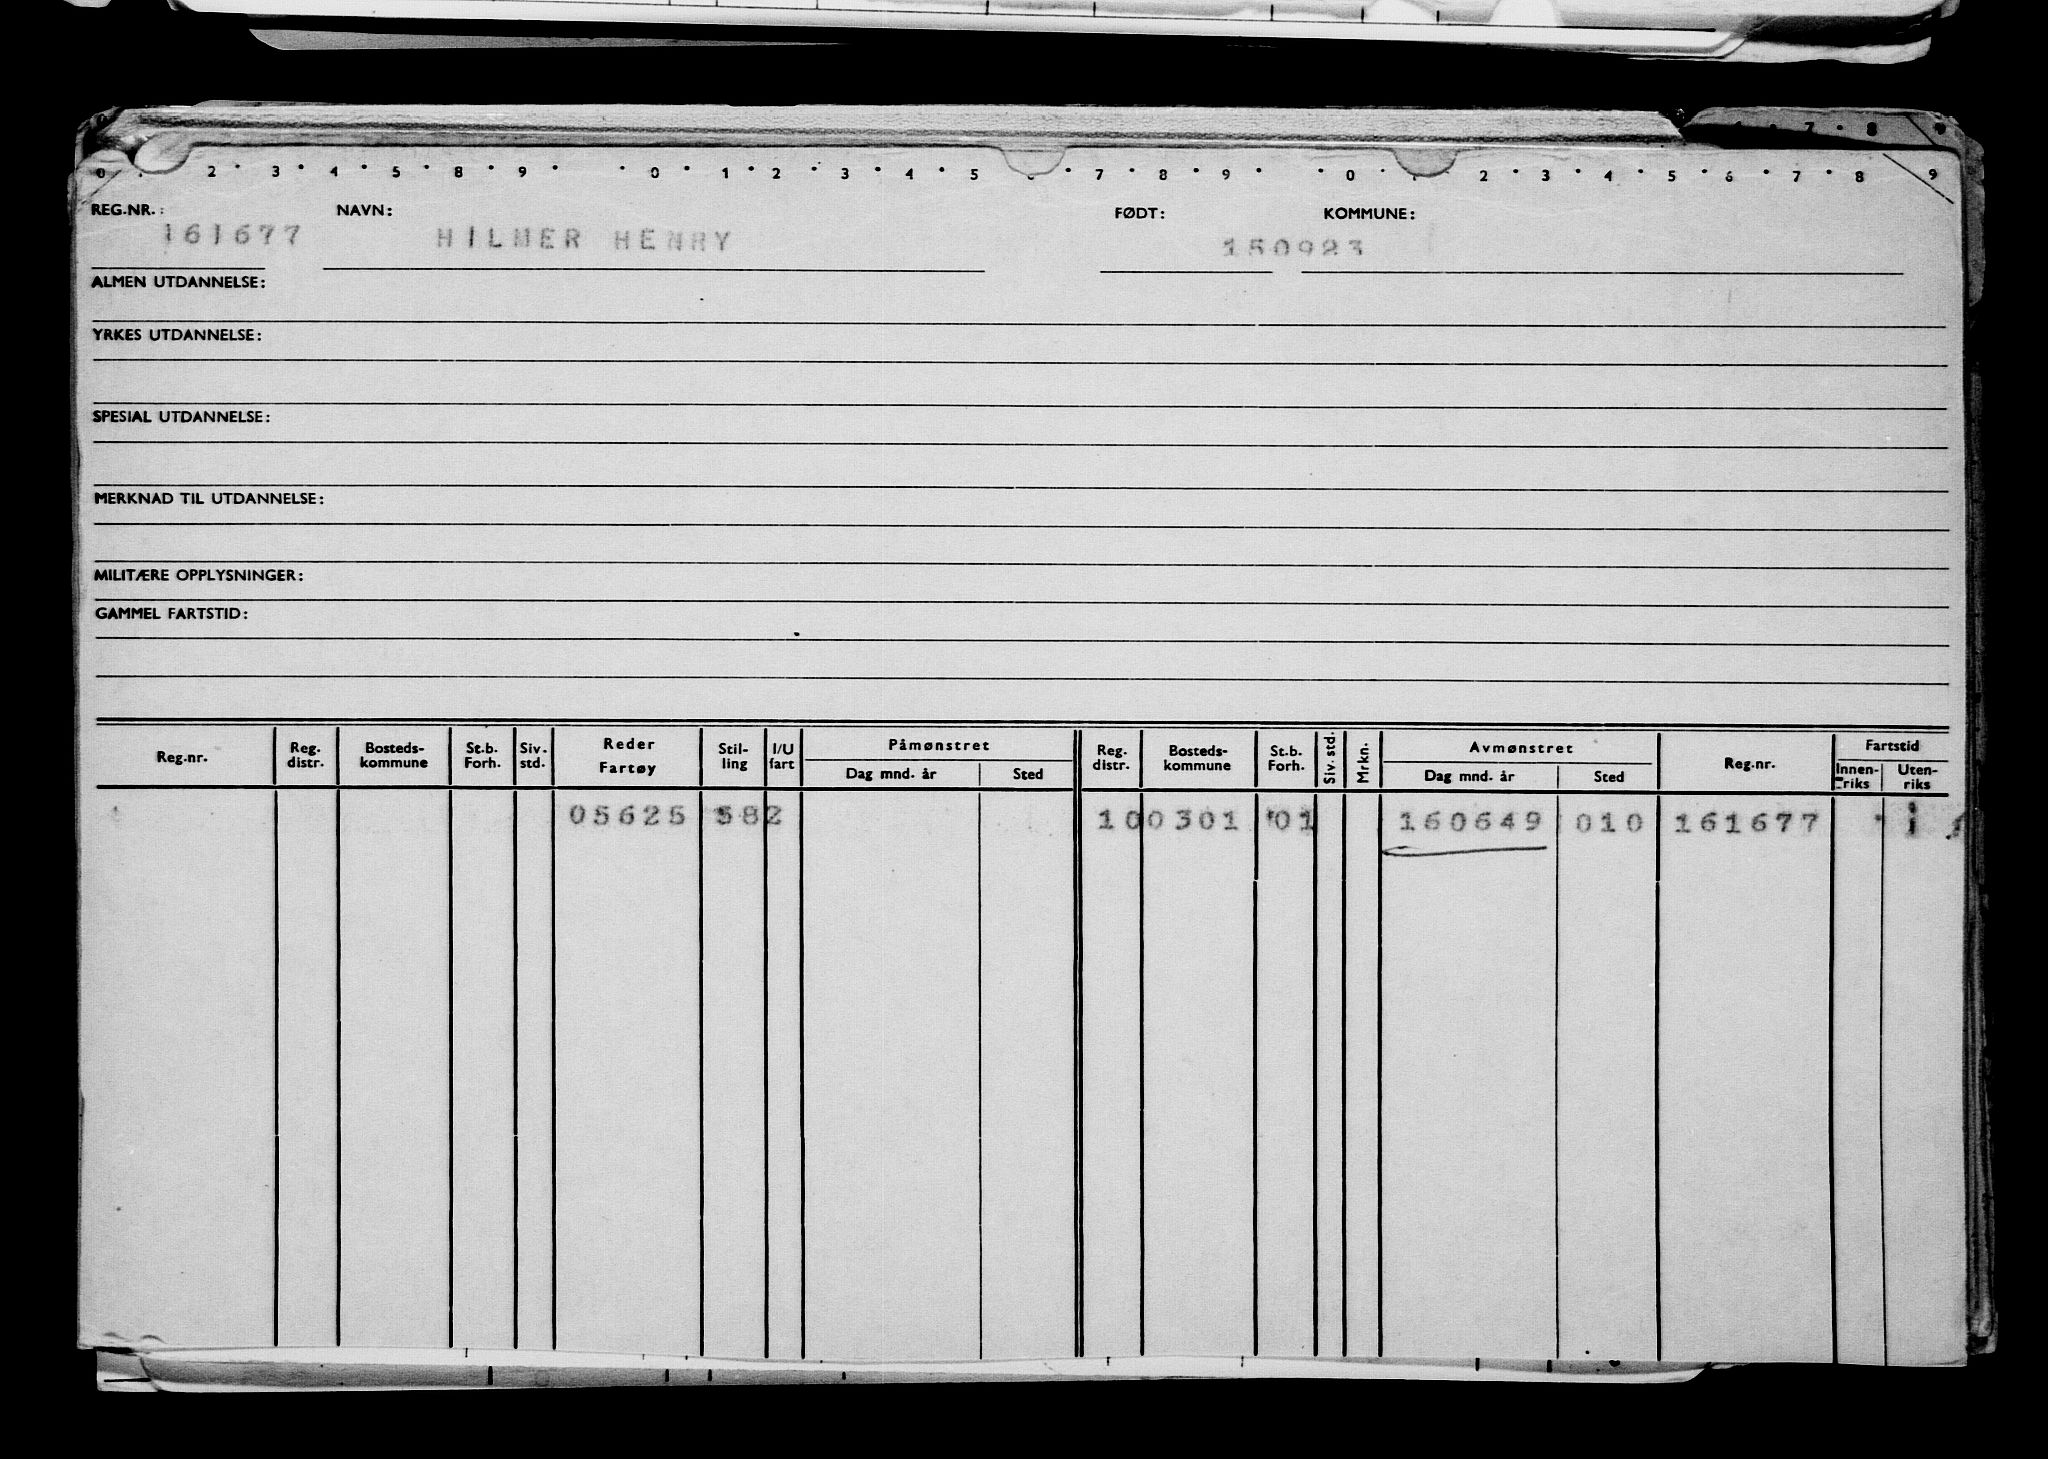 7 8 9
0 2 3 4 5 8 9 0 1 2 3 4 5 7 8 9 0 2 3 4 5 6 7 8 9
REG.NR.: NAVN: FØDT: KOMMUNE:
161677 HILMER HENRY 150923
ALMEN UTDANNELSE:
YRKES UTDANNELSE:
SPESIAL UTDANNELSE:
MERKNAD TIL UTDANNELSE:
MILITÆRE OPPLYSNINGER:
GAMMEL FARTSTID:
Reg.nr. Reg. distr. Bosteds-kommune St.b. Forh. Siv. std. Reder Fartøy Stil-ling I/U fart Påmønstret Dag mnd. år Sted Reg. distr. Bosteds-kommune St.b. Forh. Siv. std. Mrkn. Avmønstret Dag mnd. år Sted Reg.nr. Fartstid Innen-riks Uten-riks
05625 582 100301 01 160649 010 161677 1